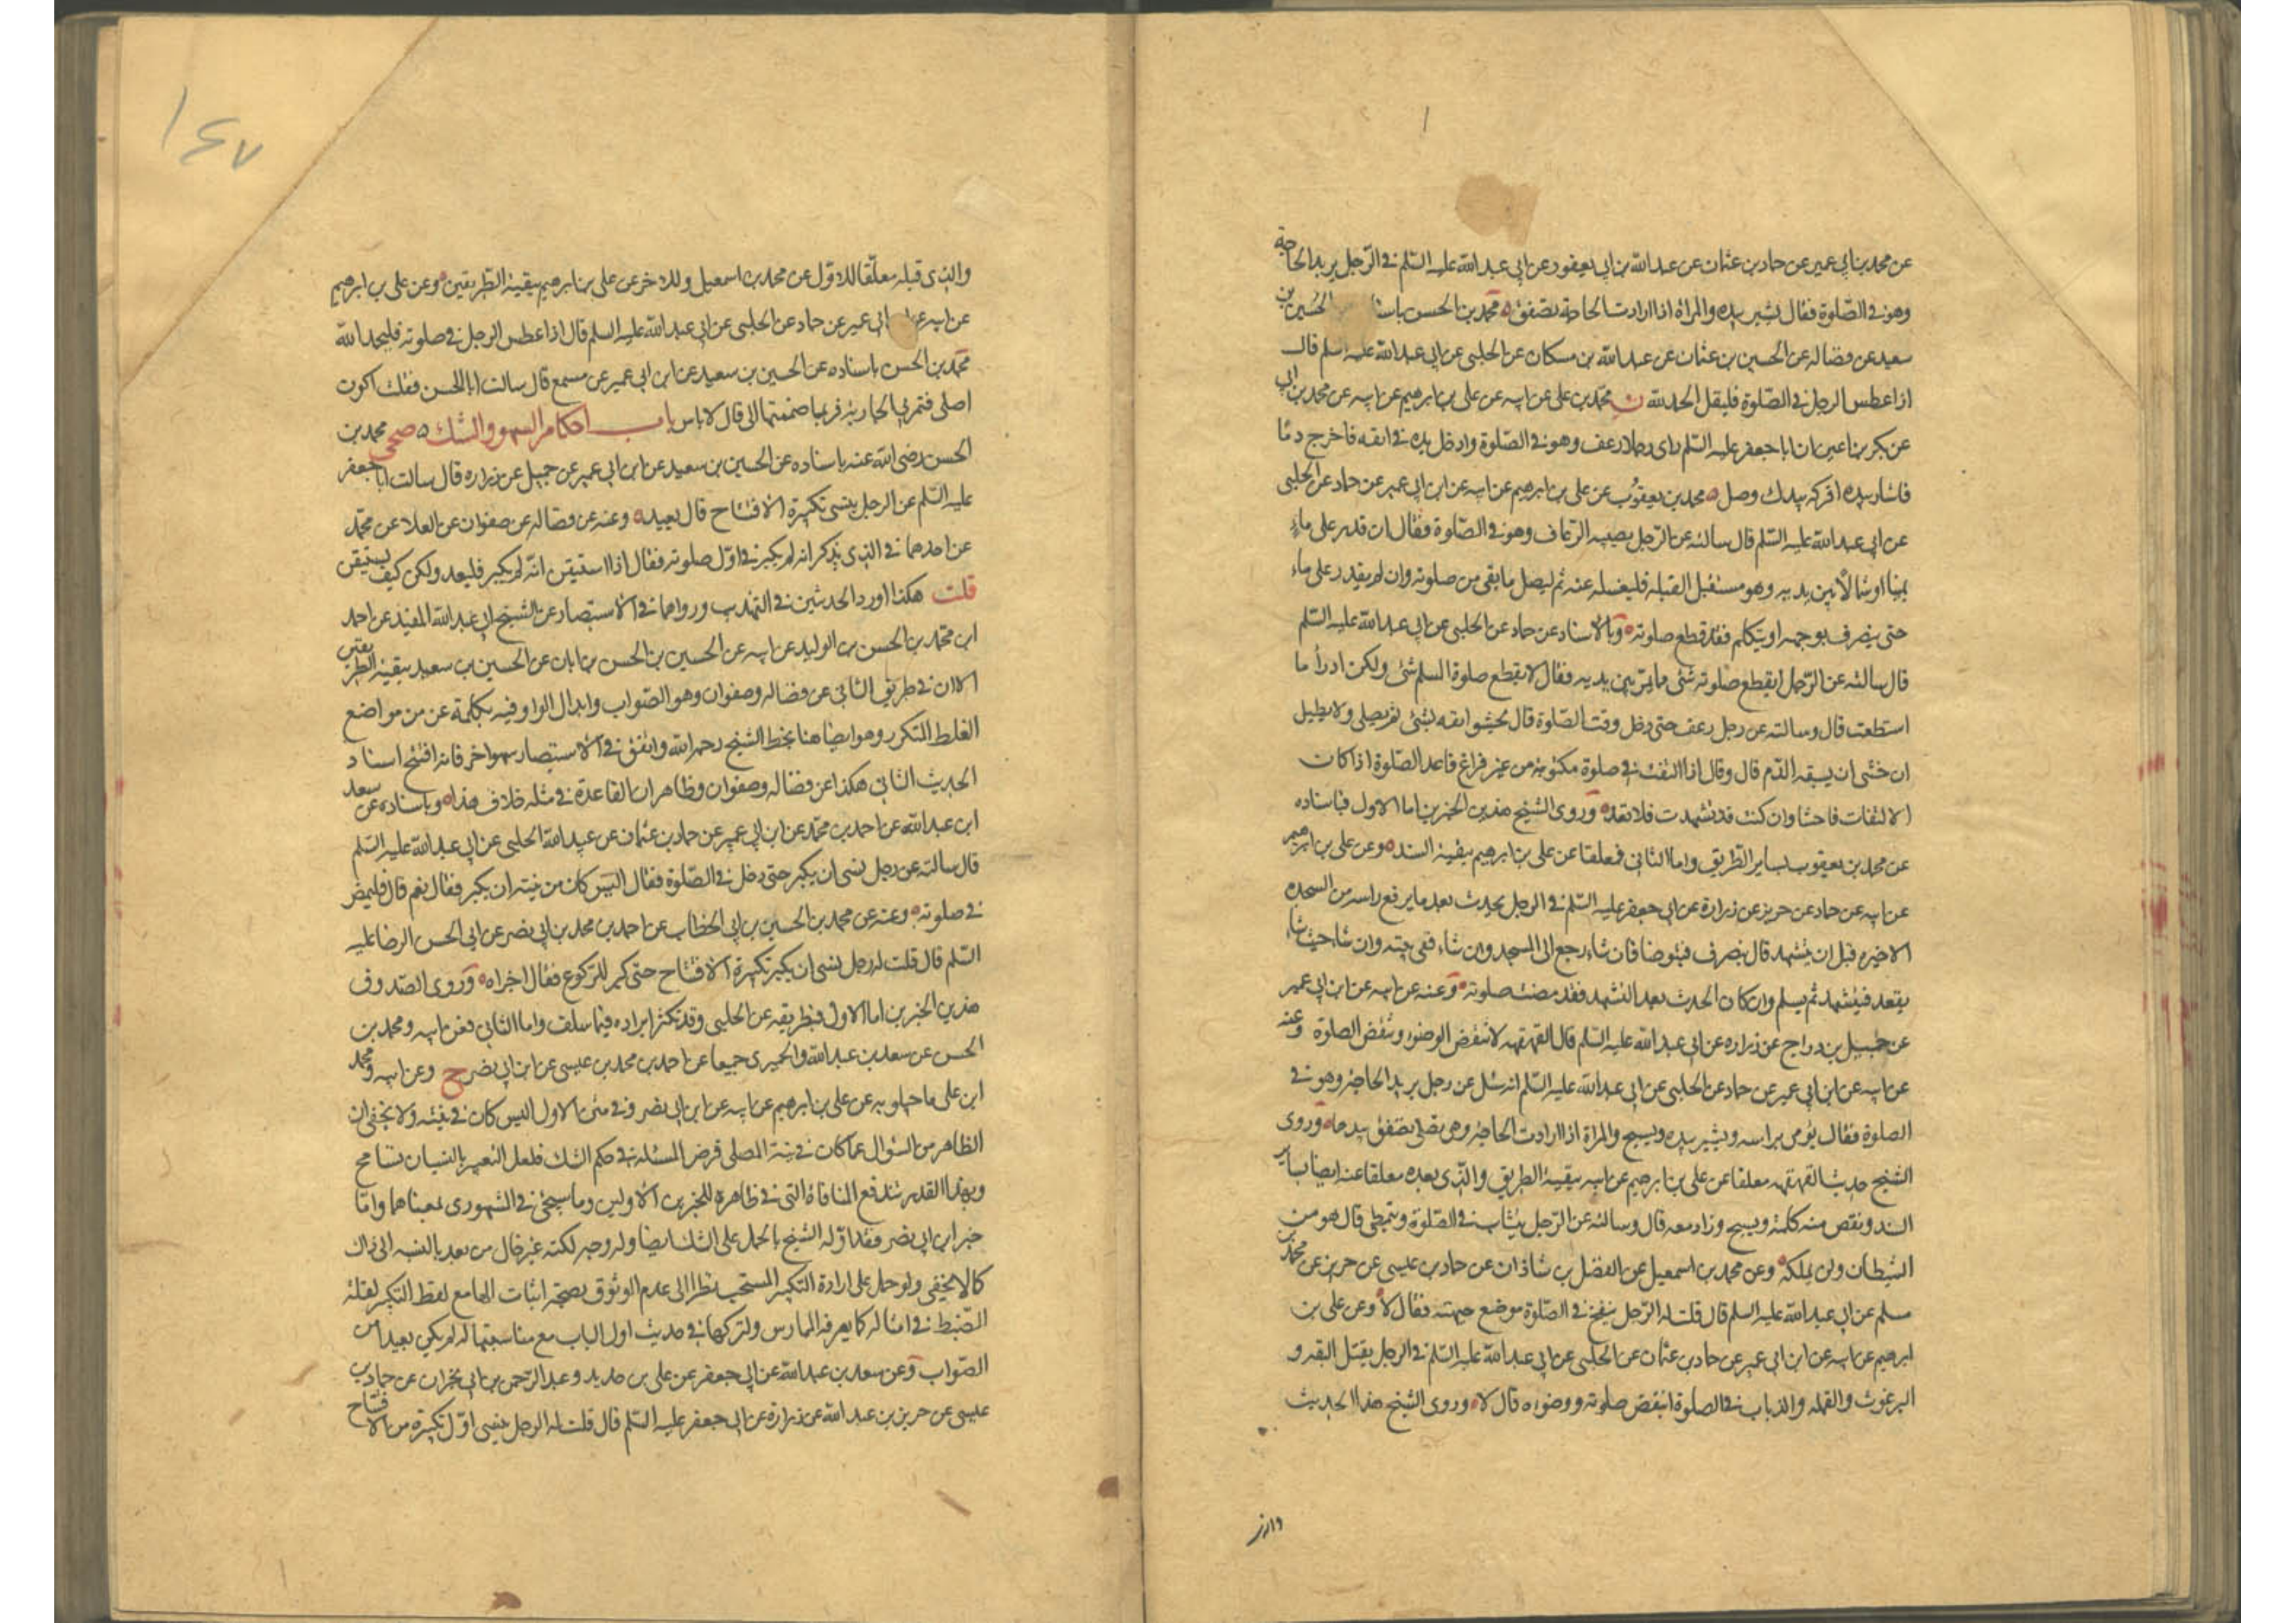 عن محمد بن ابي عمير عن حماد بن عثمان عن عبد الله بن ابي يعفور عن ابي عبد الله عليه السّلم في الرّجل يريد الحاجة
وهو في الصّلوة فقال يشير بيده والمراة اذا ارادت الحاجة تصفق محمد بن الحسن باسنا الحسين بن
سعيد عن فضاله عن الحسين بن عثمان عن عبد الله بن مسكان عن الحلبي عن ابي عبد الله عليه السلم قال
اذا عطس الرجل في الصّلوة فليقل الحمد لله ن محمد بن علي عن ابيه عن علي بن ابرهيم عن ابيه عن محمد بن ابي
عن بكر بن اعين ان ابا جعفر عليه السّلم راى رجلا رعف وهو في الصّلوة وادخل يده في انفه فاخرج دمًا
فاشار بيده افركه بيدك وصل محمد بن يعقوب عن علي بن ابرهيم عن ابيه عن ابن ابي عمير عن حماد عن الحلبي
عن ابي عبد الله عليه السّلم قال سالته عن الرّجل يصيبه الرّعاف وهو في الصّلوة فقال ان قدر على ماء
يمينا او شمالًا بين يديه وهو مستقبل القبله فليغسله عنه ثم ليصل ما بقي من صلوته وان لم يقدر على ماء
حتى ينصرف بوجهه او يتكلم فقد قطع صلوته وبالاسناد عن حماد عن الحلبي عن ابي عبد الله عليه السّلم
قال سالته عن الرّجل ايقطع صلوته شئ مما يمرّ بين يديه فقال لا يقطع صلوة المسلم شئ ولكن ادرأ ما
استطعت قال وسالته عن رجل رعف حتى دخل وقت الصّلوة قال يحشو انفه بشئ ثم يصلي ولا يطيل
ان خشي ان يسبقه الدّم قال وقال اذا التفت في صلوة مكتوبة من غير فراغ فاعد الصّلوة اذا كان
الالتفات فاحشا وان كنت قد تشهدت فلا تعد وروى الشيخ هذين الخبرين اما الاول فباسناده
عن محمد بن يعقوب بساير الطّريق واما الثاني فمعلقا عن علي بن ابرهيم ببقية السند وعن علي بن ابرهيم
عن ابيه عن حماد عن حريز عن زرارة عن ابي جعفر عليه السّلم في الرجل يحدث بعد ما يرفع راسه من السجده
الاخيره قبل ان يتشهد قال ينصرف فيتوضا فان شاء رجع الى المسجد وان شاء ففي بيته وان شاء حيث شاء
يقعد فيتشهد ثم يسلم وان كان الحدث بعد التشهد فقد مضت صلوته وعنه عن ابيه عن ابن ابي عمير
عن جميل بن دراج عن زراره عن ابي عبد الله عليه السلم قال القهقهه لا تنقض الوضوء وتنقض الصلوة وعنه
عن ابيه عن ابن ابي عمير عن حماد عن الحلبي عن ابي عبد الله عليه السّلم انه سئل عن رجل يريد الحاجه وهو في
الصلوة فقال يؤمي براسه ويشير بيده ويسبح والمراة اذا ارادت الحاجه وهي تصلي تصفق بيدها وروى
الشيخ حديث القهقهه معلقا عن علي بن ابرهيم عن ابيه ببقية الطريق والذي بعده معلقا عنه ايضا بساير
السند ونقص منه كلمة ويسبح وزاد معه قال وسالته عن الرّجل يتثاب في الصّلوة ويتمطي قال هو من
الشيطان ولن يملكه وعن محمد بن اسمعيل عن الفضل بن شاذان عن حماد بن عيسى عن حريز عن محمد بن
مسلم عن ابي عبد الله عليه السلم قال قلت له الرّجل ينفخ في الصّلوة موضع جبهته فقال لا وعن علي بن
ابرهيم عن ابيه عن ابن ابي عمير عن حماد بن عثمان عن الحلبي عن ابي عبد الله عليه السّلم في الرجل يقتل البقه و
البرغوث والقمله والذباب في الصلوة اينقض صلوته ووضوءه قال لا وروى الشيخ هذا الحديث
والذي قبله معلّقا للاول عن محمد بن اسمعيل وللاخر عن علي بن ابرهيم ببقية الطّريقين وعن علي بن ابرهيم
عن ابيه ابي عمير عن حماد عن الحلبي عن ابي عبد الله عليه السلم قال اذا عطس الرجل في صلوته فليحمد الله
محمد بن الحسن باسناده عن الحسين بن سعيد عن ابن ابي عمير عن مسمع قال سالت ابا الحسن فقلت اكون
اصلي فتمر بي الجاريه فربما ضممتها الي قال لا باس باب احكام السهو والشك صحي محمد بن
الحسن رضي الله عنه باسناده عن الحسين بن سعيد عن ابن ابي عمير عن جميل عن زراره قال سالت ابا جعفر
عليه السّلم عن الرجل ينسى تكبيرة الافتتاح قال يعيد وعنه عن فضاله عن صفوان عن العلا عن محمد
عن احدهما في الذي يذكر انه لم يكبر في اوّل صلوته فقال اذا استيقن انّه لم يكبر فليعد ولكن كيف يستيقن
قلت هكذا اورد الحديثين في التهذيب ورواهما في الاستبصار عن الشيخ ابي عبد الله المفيد عن احمد
ابن محمّد بن الحسن بن الوليد عن ابيه عن الحسين بن الحسن بن ابان عن الحسين بن سعيد ببقية الطريقين
الا ان في طريق الثاني عن فضاله وصفوان وهو الصّواب وابدال الواو فيه بكلمة عن من مواضع
الغلط المتكرر وهو ايضا هنا بخط الشيخ رحمه الله واتفق في الاستبصار سهو اخر فانه افتتح اسناد
الحديث الثاني هكذا عن فضاله وصفوان وظاهر ان القاعدة في مثله خلاف هذا وباسناده عن سعد
ابن عبد الله عن احمد بن محمّد عن ابن ابي عمير عن حماد بن عثمان عن عبيد الله الحلبي عن ابي عبد الله عليه السّلم
قال سالته عن رجل نسي ان يكبر حتى دخل في الصّلوة فقال اليس كان من نيته ان يكبر فقال نعم قال فليمض
في صلوته وعنه عن محمد بن الحسين بن ابي الخطاب عن احمد بن محمد بن ابي نصر عن ابي الحسن الرضا عليه
السّلم قال قلت له رجل نسي ان يكبر تكبيرة الافتتاح حتى كبر للركوع فقال اجزاه وروى الصدوق
هذين الخبرين اما الاول فبطريقه عن الحلبي وقد تكثر ايراده فيما سلف واما الثاني فعن ابيه ومحمد بن
الحسن عن سعد بن عبد الله والحميري جميعا عن احمد بن محمد بن عيسى عن ابن ابي نصر ح وعن ابيه ومحمد
ابن علي ماجيلويه عن علي بن ابرهيم عن ابيه عن ابن ابي نصر وفي متن الاول اليس كان في نيته ولا يخفى ان
الظاهر من السؤال عما كان في نية المصلي فرض المسئله في حكم الشك فلعل التعبير بالنسيان تسامح
وبهذا القدر تندفع المنافاة التي في ظاهره للخبرين الاولين وما سيجئ في المشهوري بمعناهما وامّا
خبر ابن ابي نصر فقد اوّله الشيخ بالحمل على الشك ايضا وله وجه لكنه غير خال من بعد بالنسبه الى ذاك
كما لا يخفى ولو حمل على ارادة التكبير المستحب نظرا الى عدم الوثوق بصحة اثبات الجامع لفظ التكبير لقلة
الضبط في امثاله كما يعرفه الممارس ولتركها في حديث اول الباب مع مناسبتها له لم يكن بعيدا من
الصّواب وعن سعد بن عبد الله عن ابي جعفر عن علي بن حديد وعبد الرّحمن بن ابي نجران عن حماد بن
عيسى عن حريز بن عبد الله عن زرارة عن ابي جعفر عليه السّلم قال قلت له الرجل ينسى اوّل تكبيرة من الافتتاح